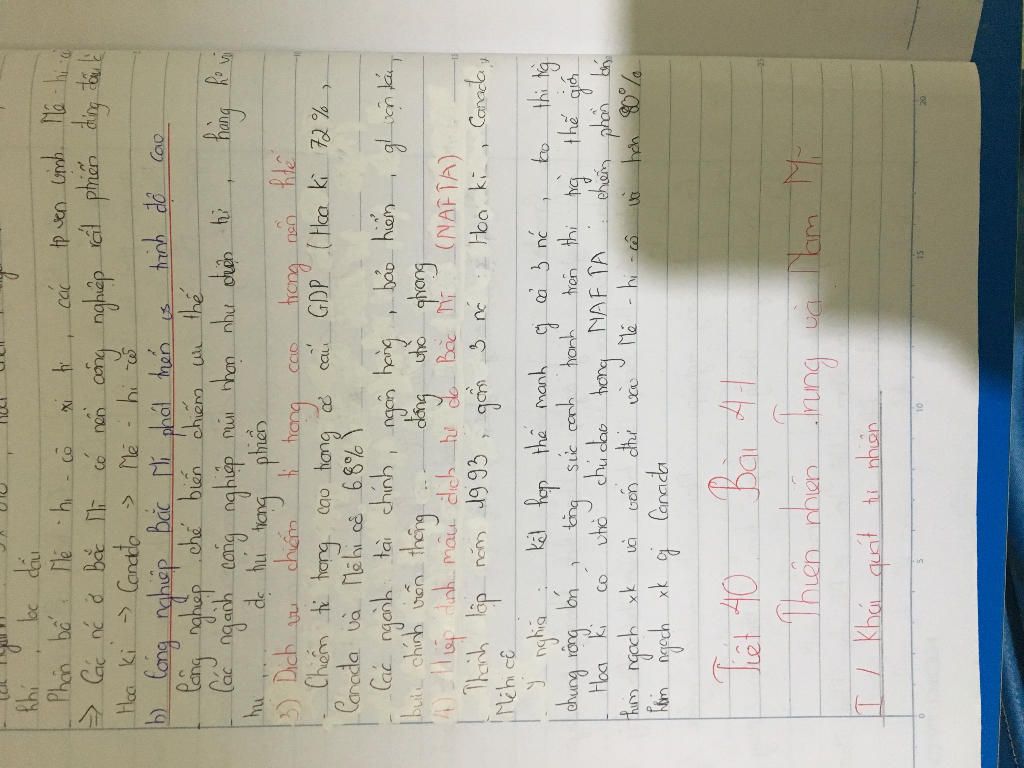 khí, lọc dầu
- Phân bố: Mê-hi-cô xi ti, các tp ven vịnh Mê-hi-c
=> Các nc ở Bắc Mĩ có nền công nghiệp rất phát triển đứng đầu là
Hoa kì -> Canada -> Mê-hi-cô
b) Công nghiệp Bắc Mĩ phát triển ở trình độ cao
- Công nghiệp chế biến chiếm ưu thế
- Các ngành công nghiệp mũi nhọn như điện tử, hàng k vũ
trụ dc chú trọng phiền
3) Dịch vụ chiếm tỉ trọng cao trong nền ktế
- Chiếm tỉ trọng cao trong cơ cấu GDP (Hoa kì 72%,
Canada và Mêhicô 68%)
- Các ngành: tài chính, ngân hàng, bảo hiểm, gt vận tải,
bưu chính viễn thông... đóng vtrò qtrọng
4) Hiệp định mậu dịch tự do Bắc Mĩ (NAFTA)
- Thành lập năm 1993, gồm 3 nc: Hoa kì, Canada,
Mêhicô
- Ý nghĩa: kết hợp thế mạnh của cả 3 nc, tạo thị trg
chung rộng lớn, tăng sức cạnh tranh trên thị trg thế giới
- Hoa kì có vtrò chủ đạo trong NAFTA: chiếm phần lớn
kim ngạch xk và vốn đtư vào Mê-hi-cô và hơn 80%
kim ngạch xk của Canada
Tiết 40 Bài 41
Thiên nhiên Trung và Nam Mĩ
I / Khái quát tự nhiên
0
5
10
15
20